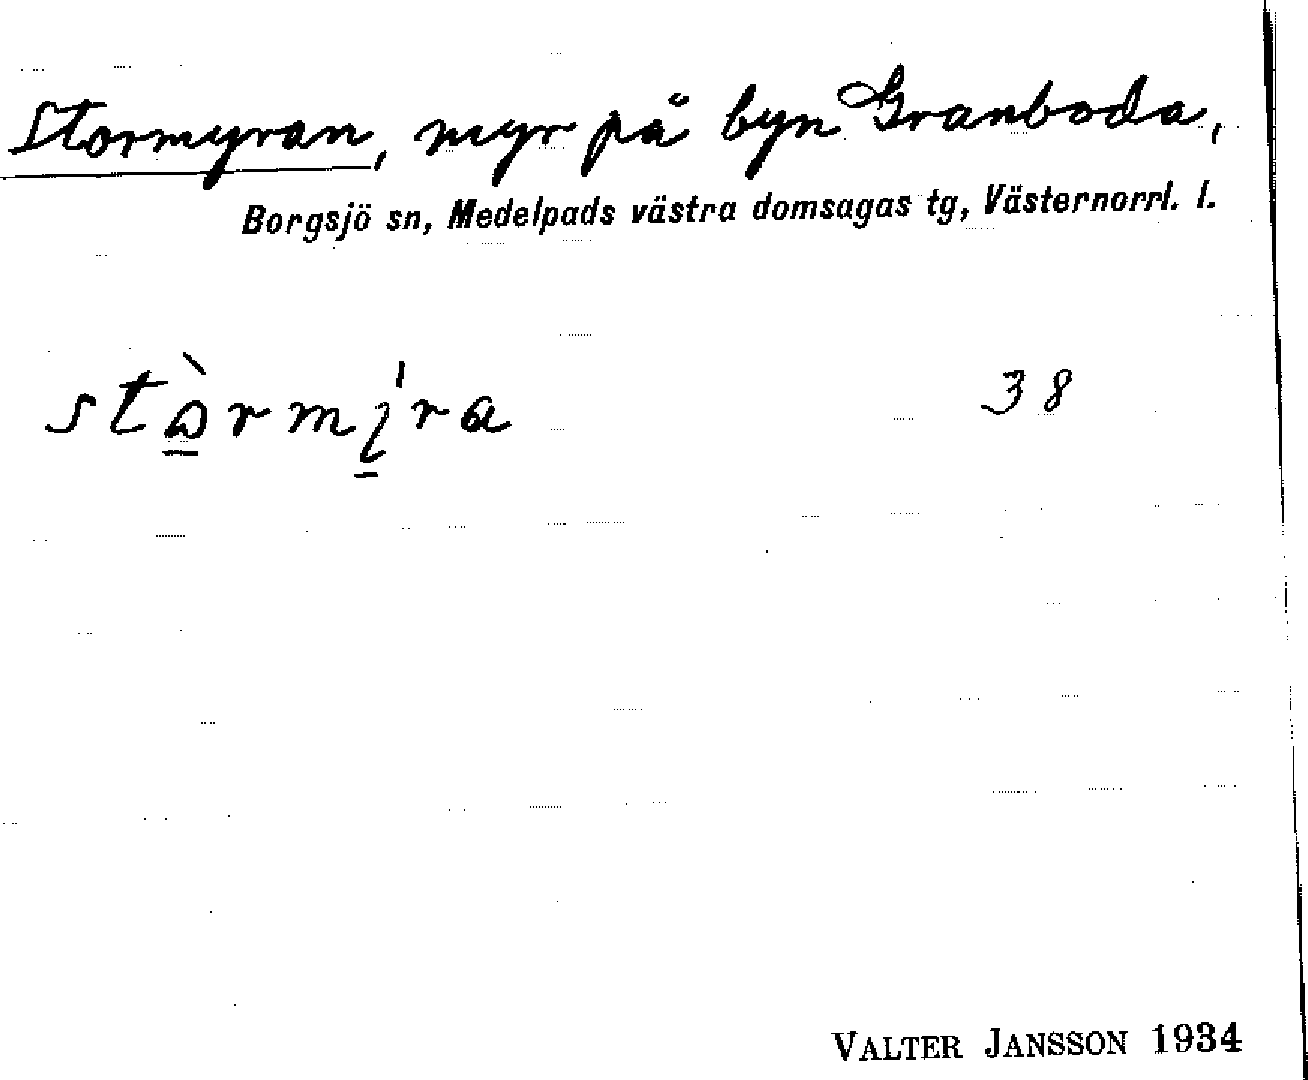 Stormyran, myr på byn Granboda,
Borgsjö sn, Medelpads västra domsagas tg, Västernorrl. l.
stɷ̠̀rmɩ̠́ra 38
VALTER JANSSON 1934